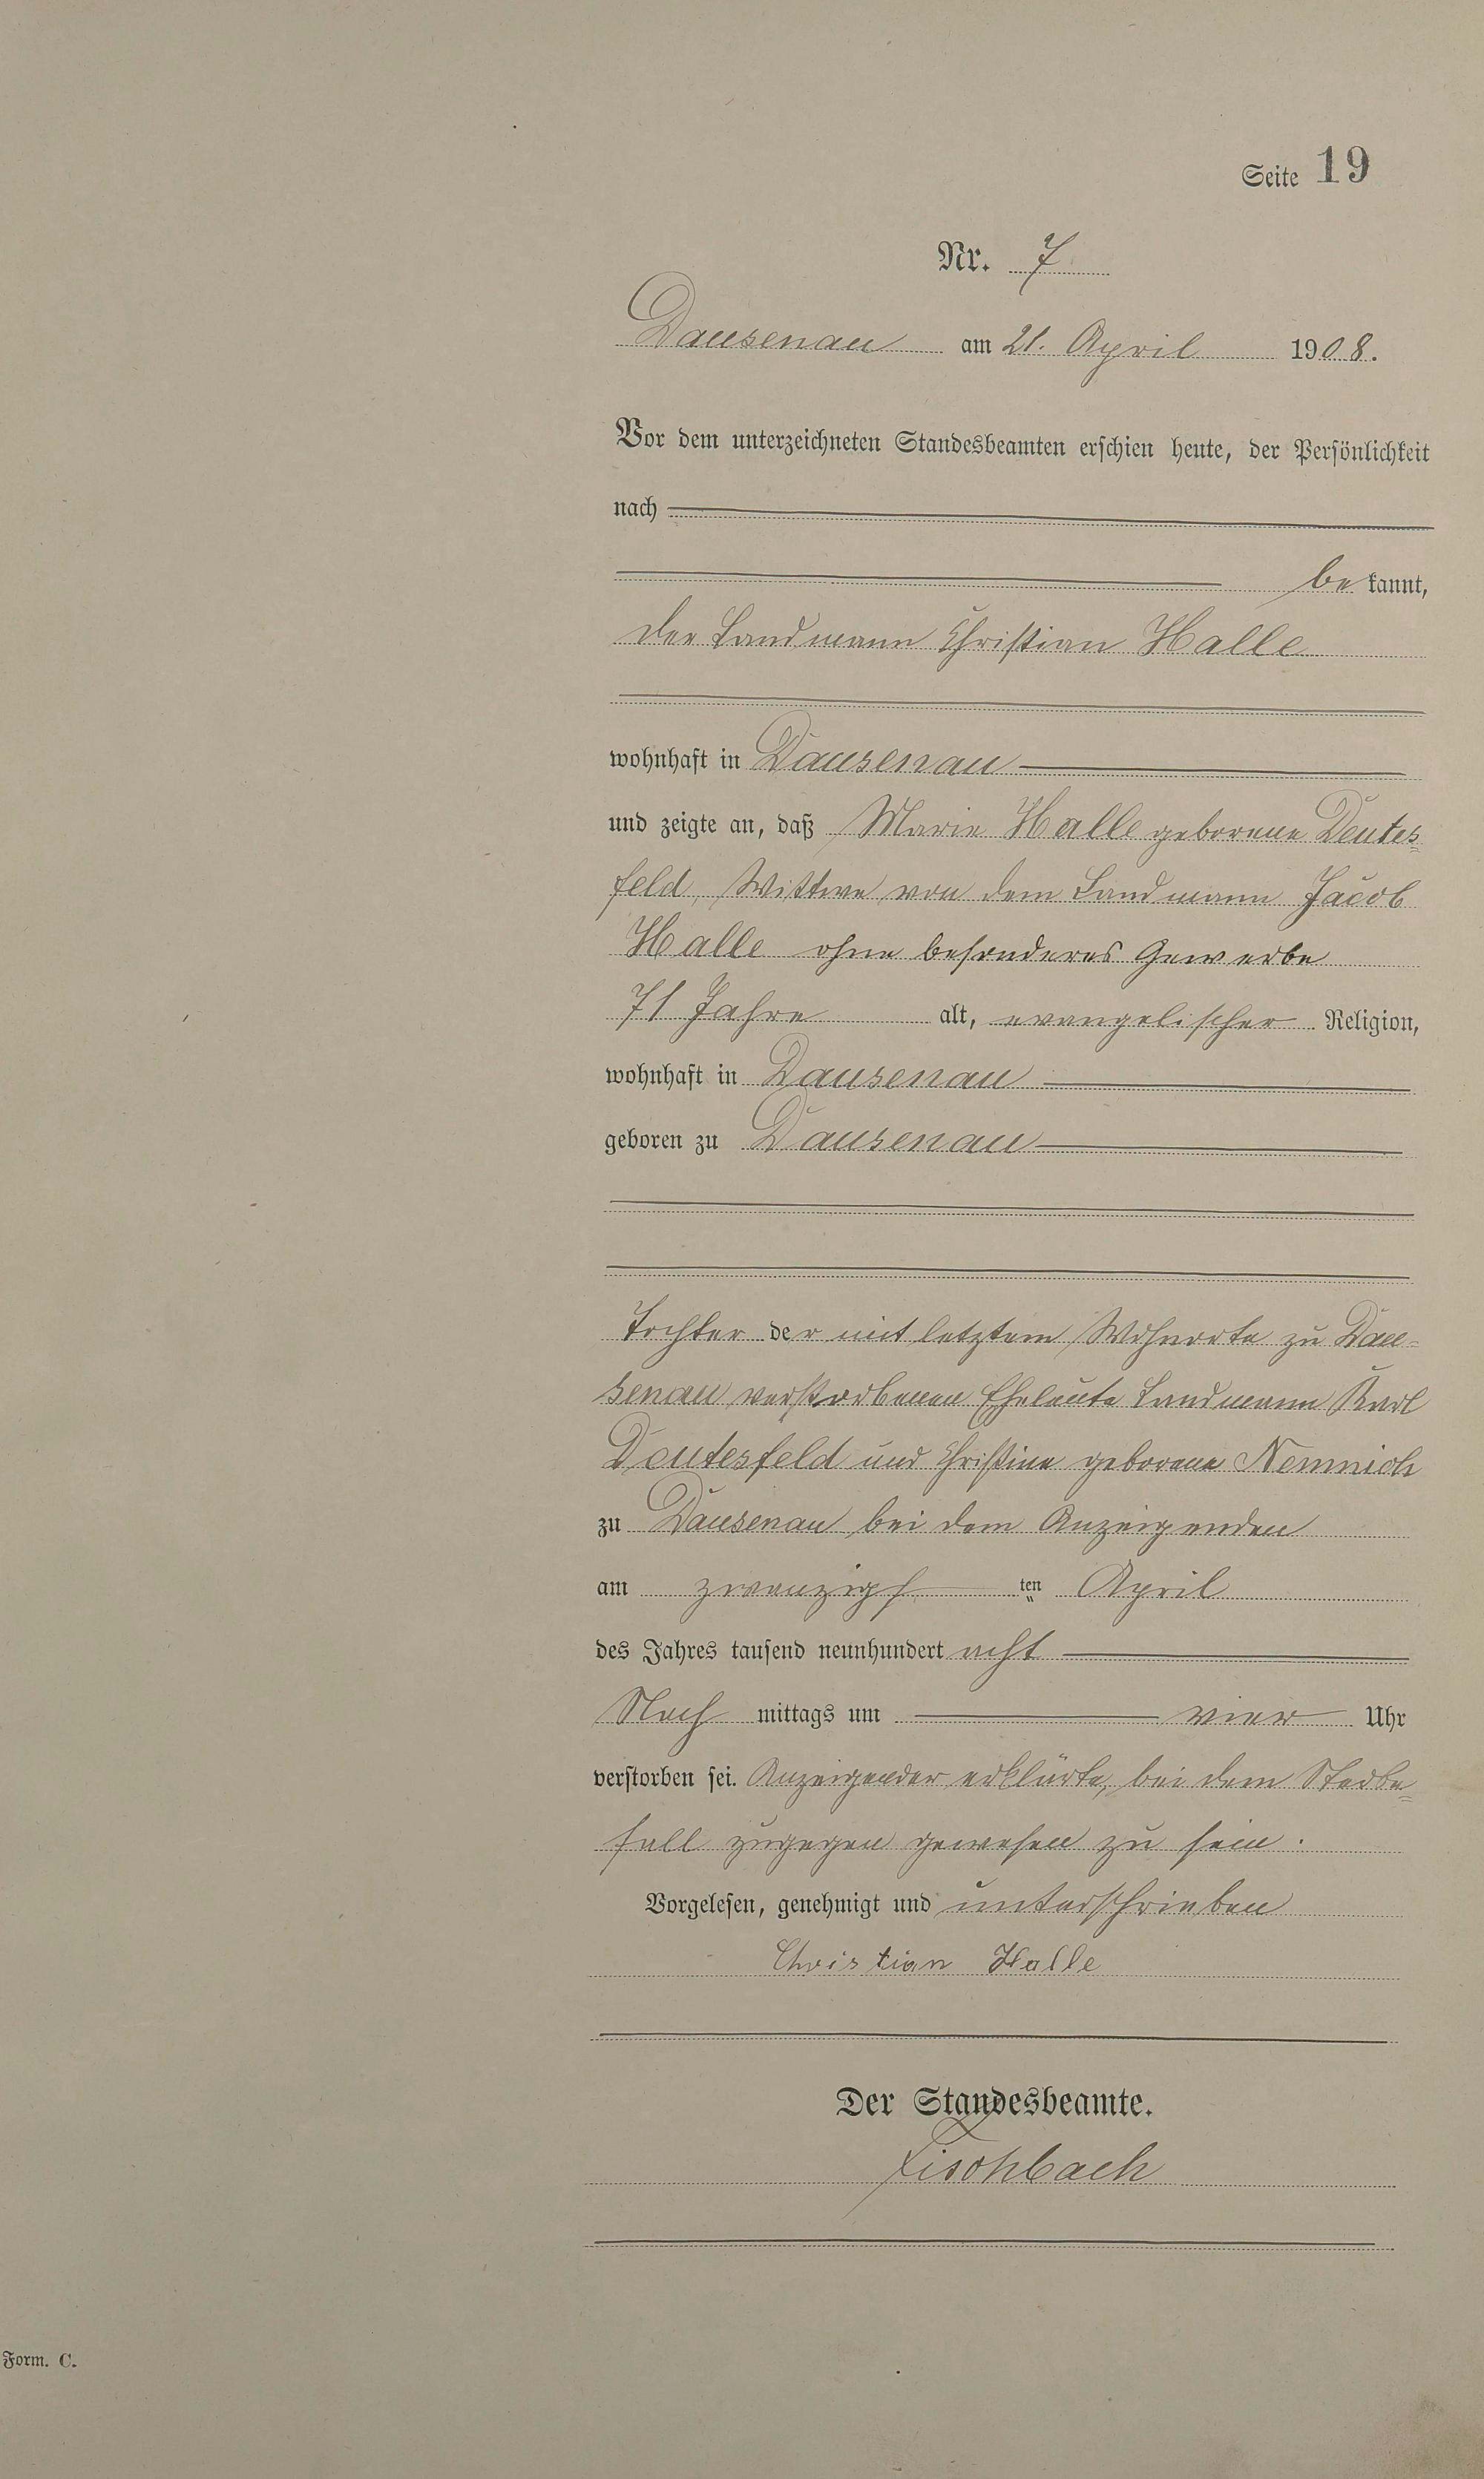 Seite 19
Nr. 7
Dausenau am 21. April 1908.
Vor dem unterzeichneten Standesbeamten erschien heute, der Persönlichkeit
nach
bekannt,
der Landmann Christian Halle
wohnhaft in Dausenau
und zeigte an, daß Marie Halle geborene Deutes=
feld, Wittwe von dem Landmann Jacob
Halle ohne besonderes Gewerbe
71 Jahre alt, evangelischer Religion,
wohnhaft in Dausenau
geboren zu Dausenau
Tochter der mit letztem Wohnorte zu Dau=
senau verstorbenen Eheleute Landmann Karl
Deutesfeld und Christine geborene Nemnich
zu Dausenau bei dem Anzeigenden
am zwanzigsten April
des Jahres tausend neunhundert acht
Nachmittags um vier Uhr
verstorben sei. Anzeigender erklärte, bei dem Sterbe=
fall zugegen gewesen zu sein.
Vorgelesen, genehmigt und unterschrieben
Christian Halle
Der Standesbeamte.
Fischbach
Form. C.